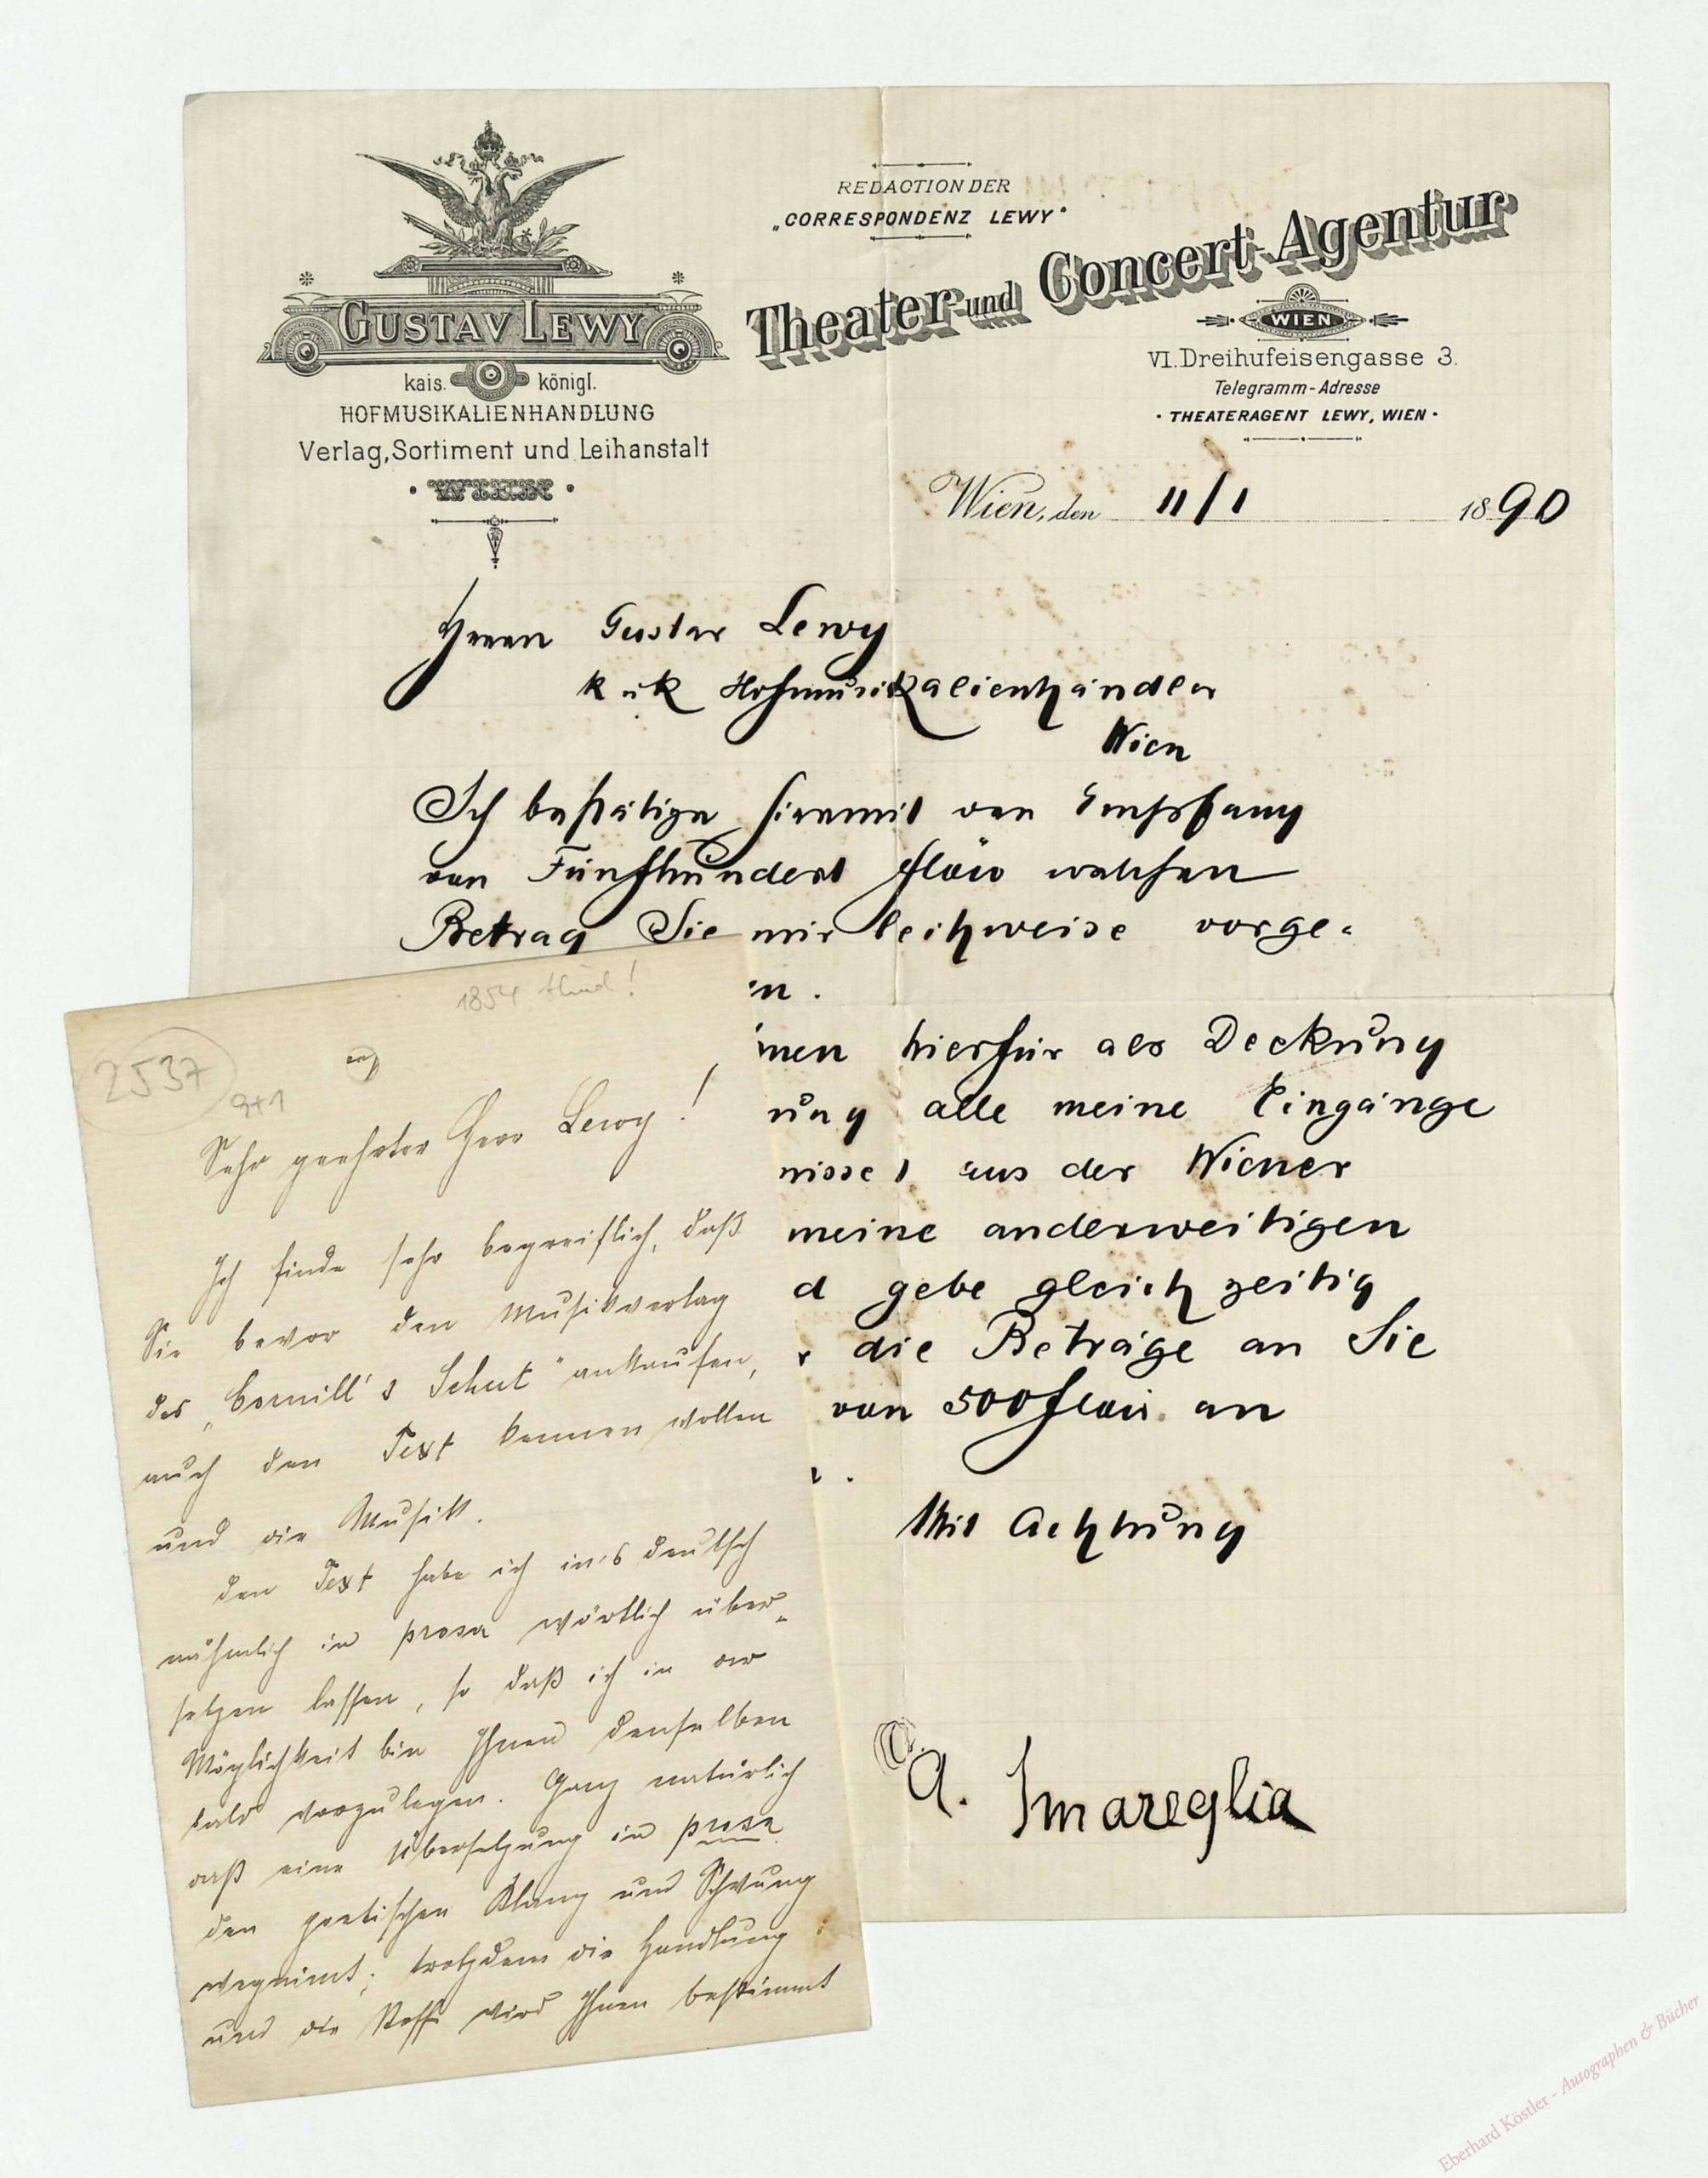 REDACTION DER
„CORRESPONDENZ LEWY“
Theater- und Concert-Agentur
WIEN
VI. Dreihufeisengasse 3.
Telegramm-Adresse
· THEATERAGENT LEWY, WIEN ·
GUSTAV LEWY
kais. königl.
HOFMUSIKALIENHANDLUNG
Verlag, Sortiment und Leihanstalt
· WIEN ·
Wien, den 11/1 1890
Herrn Gustav Lewy
k u k Hofmusikalienhändler
Wien
Ich bestätige hiermit den Empfang
von Fünfhundert welchen
Betrag Sie mir leihweise vorge-
n.
nen hierfür als Deckung
ung alle meine Eingänge
aus der Wiener
meine anderweitigen
d gebe gleichzeitig
r die Beträge an Sie
von 500 an
Mit Achtung
A. Smareglia
2537
9+1
Sehr geehrter Herr Lewy!
Ich finde sehr begreiflich, daß
Sie bevor den Musikverlag
des „Cornill's Schut“ ankaufen,
auch den Text kennen wollen
und die Musik.
Den Text habe ich in's deutsch
nähmlich in prosa wörtlich über-
setzen lassen, so daß ich in der
Möglichkeit bin Ihnen denselben
bald vorzulegen. Ganz natürlich
daß eine Übersetzung in prosa
den poetischen Klang und Schwung
wegnimt; trotzdem die Handlung
und die Stoffe wird Ihnen bestimmt
Eberhard Köstler - Autographen & Bücher